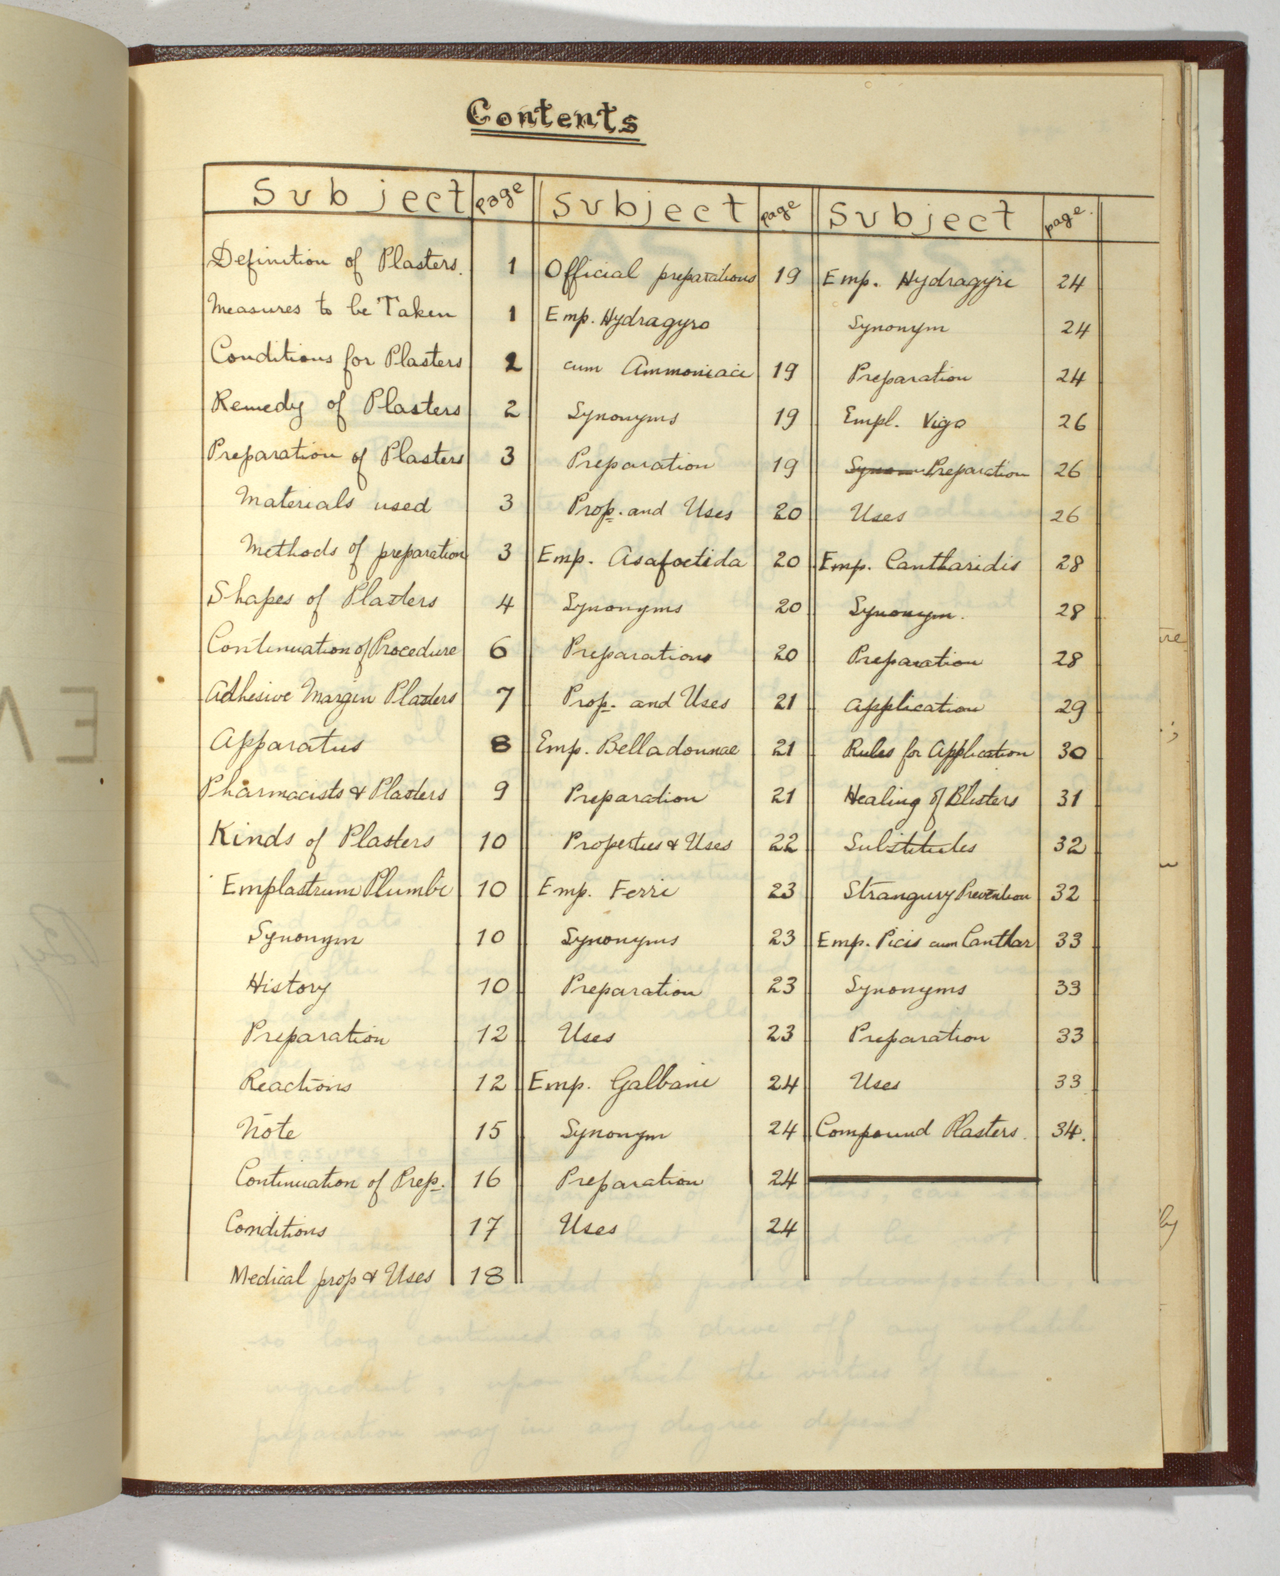 Contents
Subject page
Definition of Plasters. 1
Measures to be Taken 1
Conditions for Plasters 2
Remedy of Plasters 2
Preparation of Plasters 3
Materials used 3
Methods of preparation 3
Shapes of Plasters 4
Continuation of Procedure 6
Adhesive Margin Plasters 7
Apparatus 8
Pharmacists & Plasters 9
Kinds of Plasters 10
Emplastrum Plumbi 10
Synonym 10
History 10
Preparation 12
Reactions 12
Note 15
Continuation of Prep. 16
Conditions 17
Medical prop & Uses 18
Subject page
Official preparations 19
Emp. Hydragyro
cum Ammoniaci 19
Synonyms 19
Preparation 19
Prop. and Uses 20
Emp. Asafoetida 20
Synonyms 20
Preparations 20
Prop. and Uses 21
Emp. Belladonnae 21
Preparation 21
Properties & Uses 22
Emp. Ferri 23
Synonyms 23
Preparation 23
Uses 23
Emp. Galbani 24
Synonym 24
Preparation 24
Uses 24
Subject page.
Emp. Hydragyri 24
Synonym 24
Preparation 24
Empl. Vigo 26
Synon Preparation 26
Uses 26
Emp. Cantharidis 28
Synonym. 28
Preparation 28
Application 29
Rules for Application 30
Healing of Blisters 31
Substitutes 32
Strangury Prevention 32
Emp. Picis cum Canthar 33
Synonyms 33
Preparation 33
Uses 33
Compound Plasters. 34.